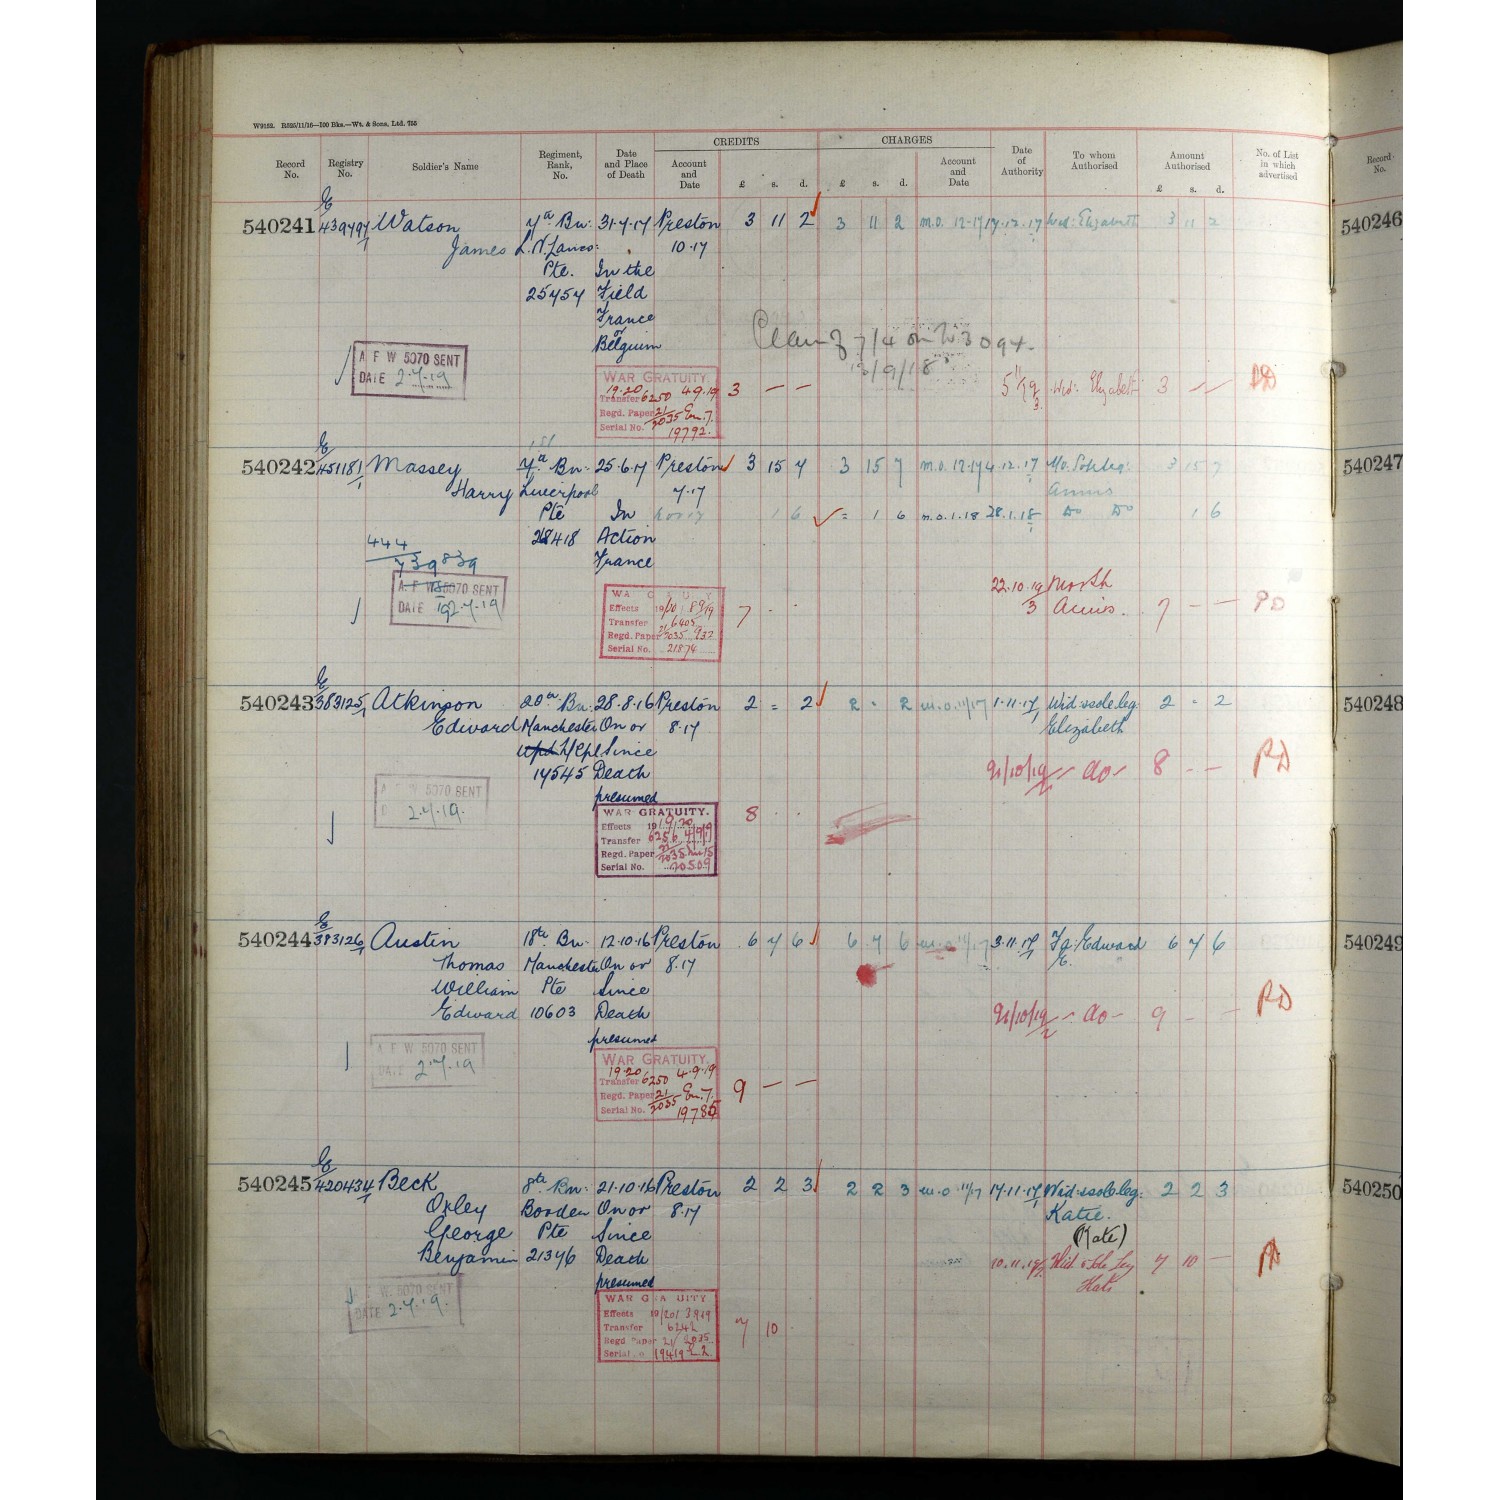 W9152. R525/11/16—100 Bks.—Wt. & Sons, Ltd. 755
CREDITS CHARGES
Record No. Registry No. Soldier's Name Regiment, Rank, No. Date and Place of Death Account and Date £ s. d. £ s. d. Account and Date Date of Authority To whom Authorised Amount Authorised £ s. d. No. of List in which advertised Record No.
E
540241 Watson 7th Bn: 31.7.17 Preston 3 11 2 3 11 2 M.O. 12.17 17.12.17 Wid: Elizabeth 3 11 2 540246
James L.N. Lancs: 10.17
Pte. In the
25454 Field
France
or
Belgium
Claim 7/4 on
13/9/18
A F W 5070 SENT
DATE 2.7.19
WAR GRATUITY.
19.20 4.9.19
Transfer 6250
Regd. Paper 21/2035 En. 7.
Serial No. 19792.
3 — —
Wid: Elizabeth 3 — —
E
540242 451181/1 Massey 7th Bn: 25.6.17 Preston 3 15 7 3 15 7 M.O. 12.17 4.12.17 3 15 7 540247
Harry Liverpool 7.17 Annis
Pte In 1 6 = 1 6 M.O. 1.18 28.1.18 Do Do 1 6
Action
France
444
739839
A F W 5070 SENT
DATE 2.7.19
Effects
Transfer 6405
Regd. Paper 21/2035 932
Serial No. 21874
7 . .
22.10.19 Moth
3 Annis. 7 — — PD
E
540243 383125/1 Atkinson 20th Bn: 28.8.16 Preston 2 = 2 2 - 2 M.O. 11/17 1.11.17 Wid: & sole leg: 2 - 2 540248
Edward Manchester On or 8.17 Elizabeth
L/Cpl Since
17545 Death
presumed
A F W 5070 SENT
2.7.19.
WAR GRATUITY.
Effects 19.20
Transfer 6256 4/9/19
Regd. Paper 21/2035
Serial No. 20509
8 . .
21/10/19 — do — 8 — — PD
E
540244 383126/1 Austin 18th Bn: 12.10.16 Preston 6 7 6 6 7 6 M.O. 11/17 3.11.17 Fa: Edward 6 7 6 540249
Thomas Manchester On or 8.17 E.
William Pte Since
Edward 10603 Death
presumed
A F W 5070 SENT
DATE 2.7.19
WAR GRATUITY.
19.20 4.9.19
Transfer 6250
Regd. Paper 21/2035 En. 7.
Serial No. 19785
9 — —
21/10/19 — do — 9 - — PD
E
540245 420434/1 Beck 8th Bn: 21.10.16 Preston 2 2 3 2 2 3 M.O. 11/17 17.11.17 Wid: & sole leg: 2 2 3 540250
Oxley Border On or 8.17 Katie.
George Pte Since (Kate)
Benjamin 21376 Death
presumed
10.11.19 Wid & Sole Leg 7 10 — PD
Kate
F W 5070 SENT
DATE 2.7.19.
WAR GRATUITY
Effects 19/20 3.9.19
Transfer 6242
Regd Paper 21/2035
7 10